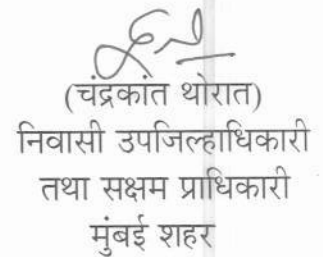 (चंद्रकांत थोरात)
निवासी उपजिल्हाधिकारी
तथा सक्षम प्राधिकारी
मुंबई शहर